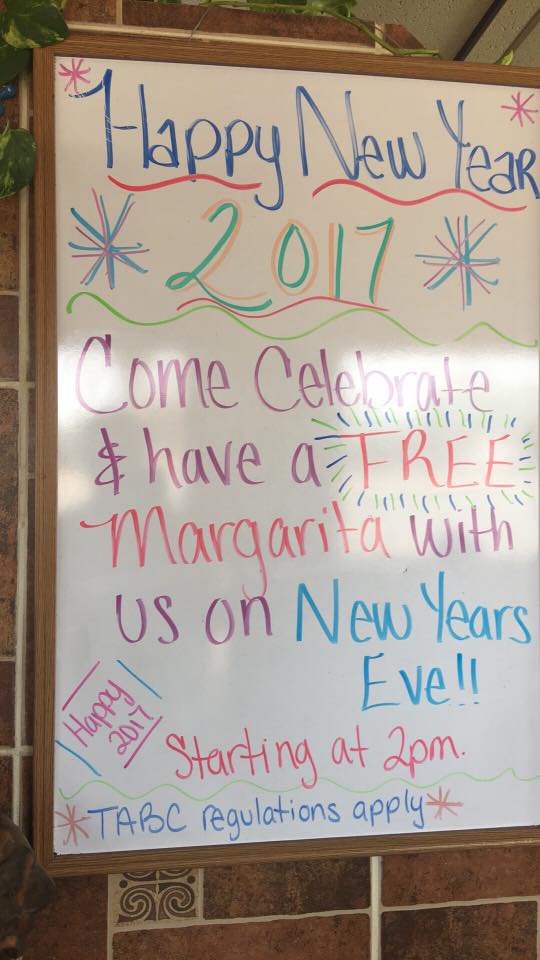 Happy New Year
2017
Come Celebrate
& have a FREE
Margarita with
us on New Years
Eve!!
Happy
2017
Starting at 2pm.
*TABC regulations apply*